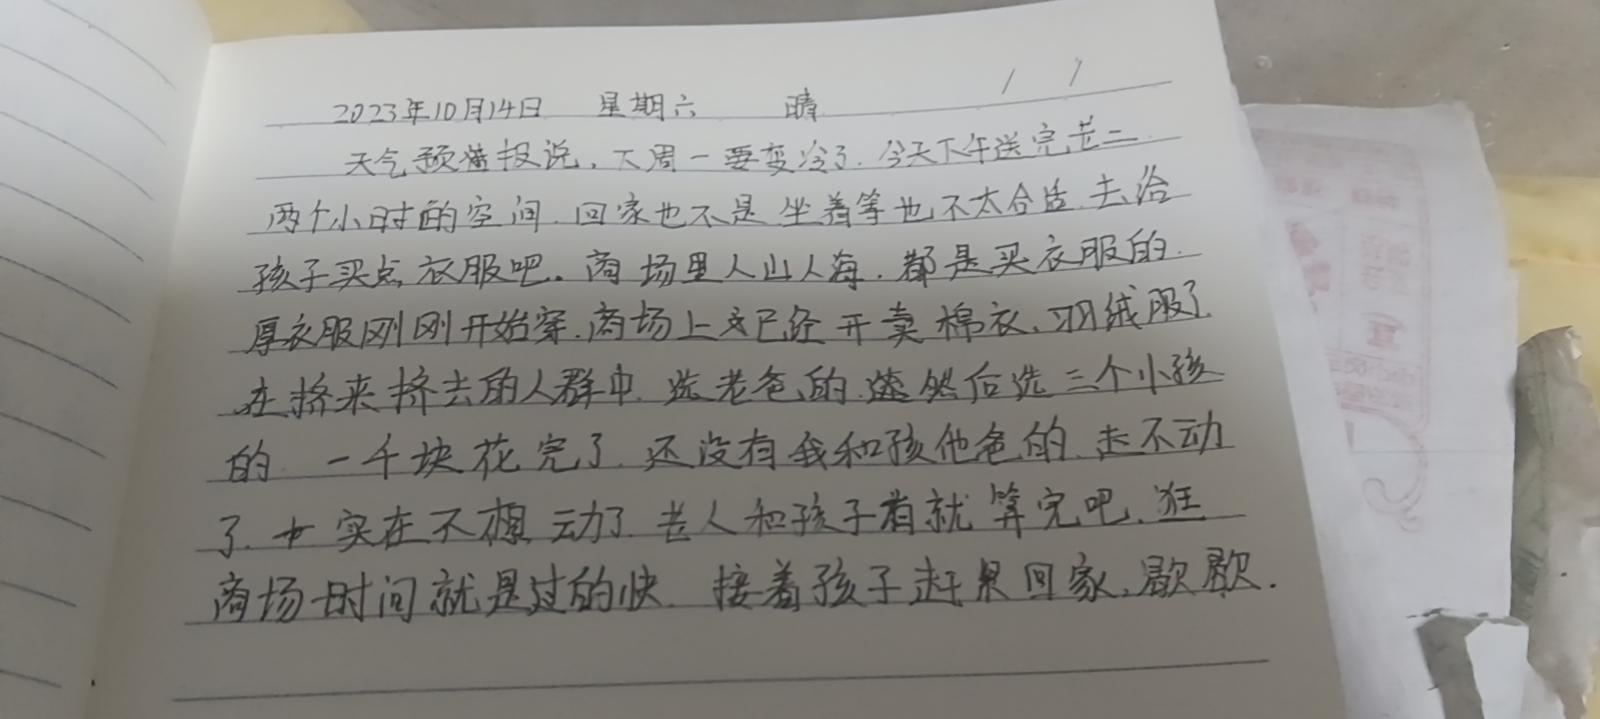 2023年10月14日 星期六 晴
天气预报说，下周一要变冷了．今天下午送完老二
两个小时的空间．回家也不是坐着等也不太合适．去给
孩子买点衣服吧。商场里人山人海．都是买衣服的．
厚衣服刚刚开始穿．商场上又已经开卖棉衣、羽绒服了．
在挤来挤去的人群中．选老爸的．然后选三个小孩
的．一千块花完了．还没有我和孩他爸的．走不动
了．实在不想动了．老人和孩子有就算完吧．逛
商场时间就是过的快．接着孩子赶紧回家．歇歇．